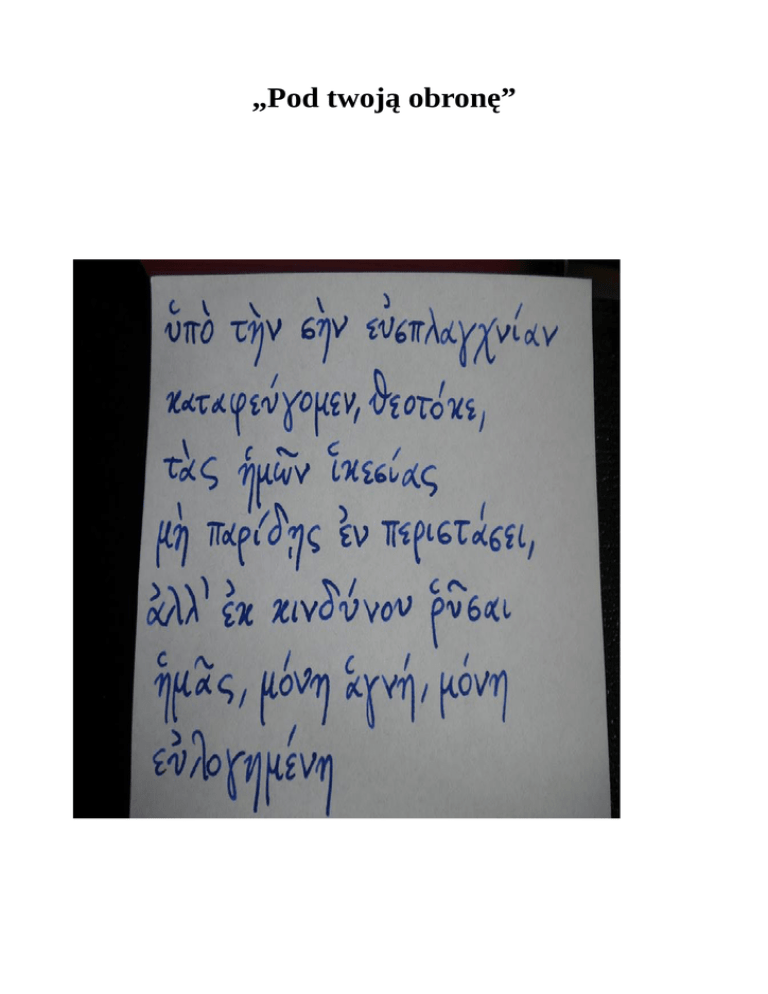 „Pod twoją obronę”
ὑπὸ τὴν σὴν εὐσπλαγχνίαν
καταφεύγομεν, θεοτόκε,
τὰς ἡμῶν ἱκεσίας
μὴ παρίδῃς ἐν περιστάσει,
ἀλλ' ἐκ κινδύνου ῥῦσαι
ἡμᾶς, μόνη ἁγνή, μόνη
εὐλογημένη